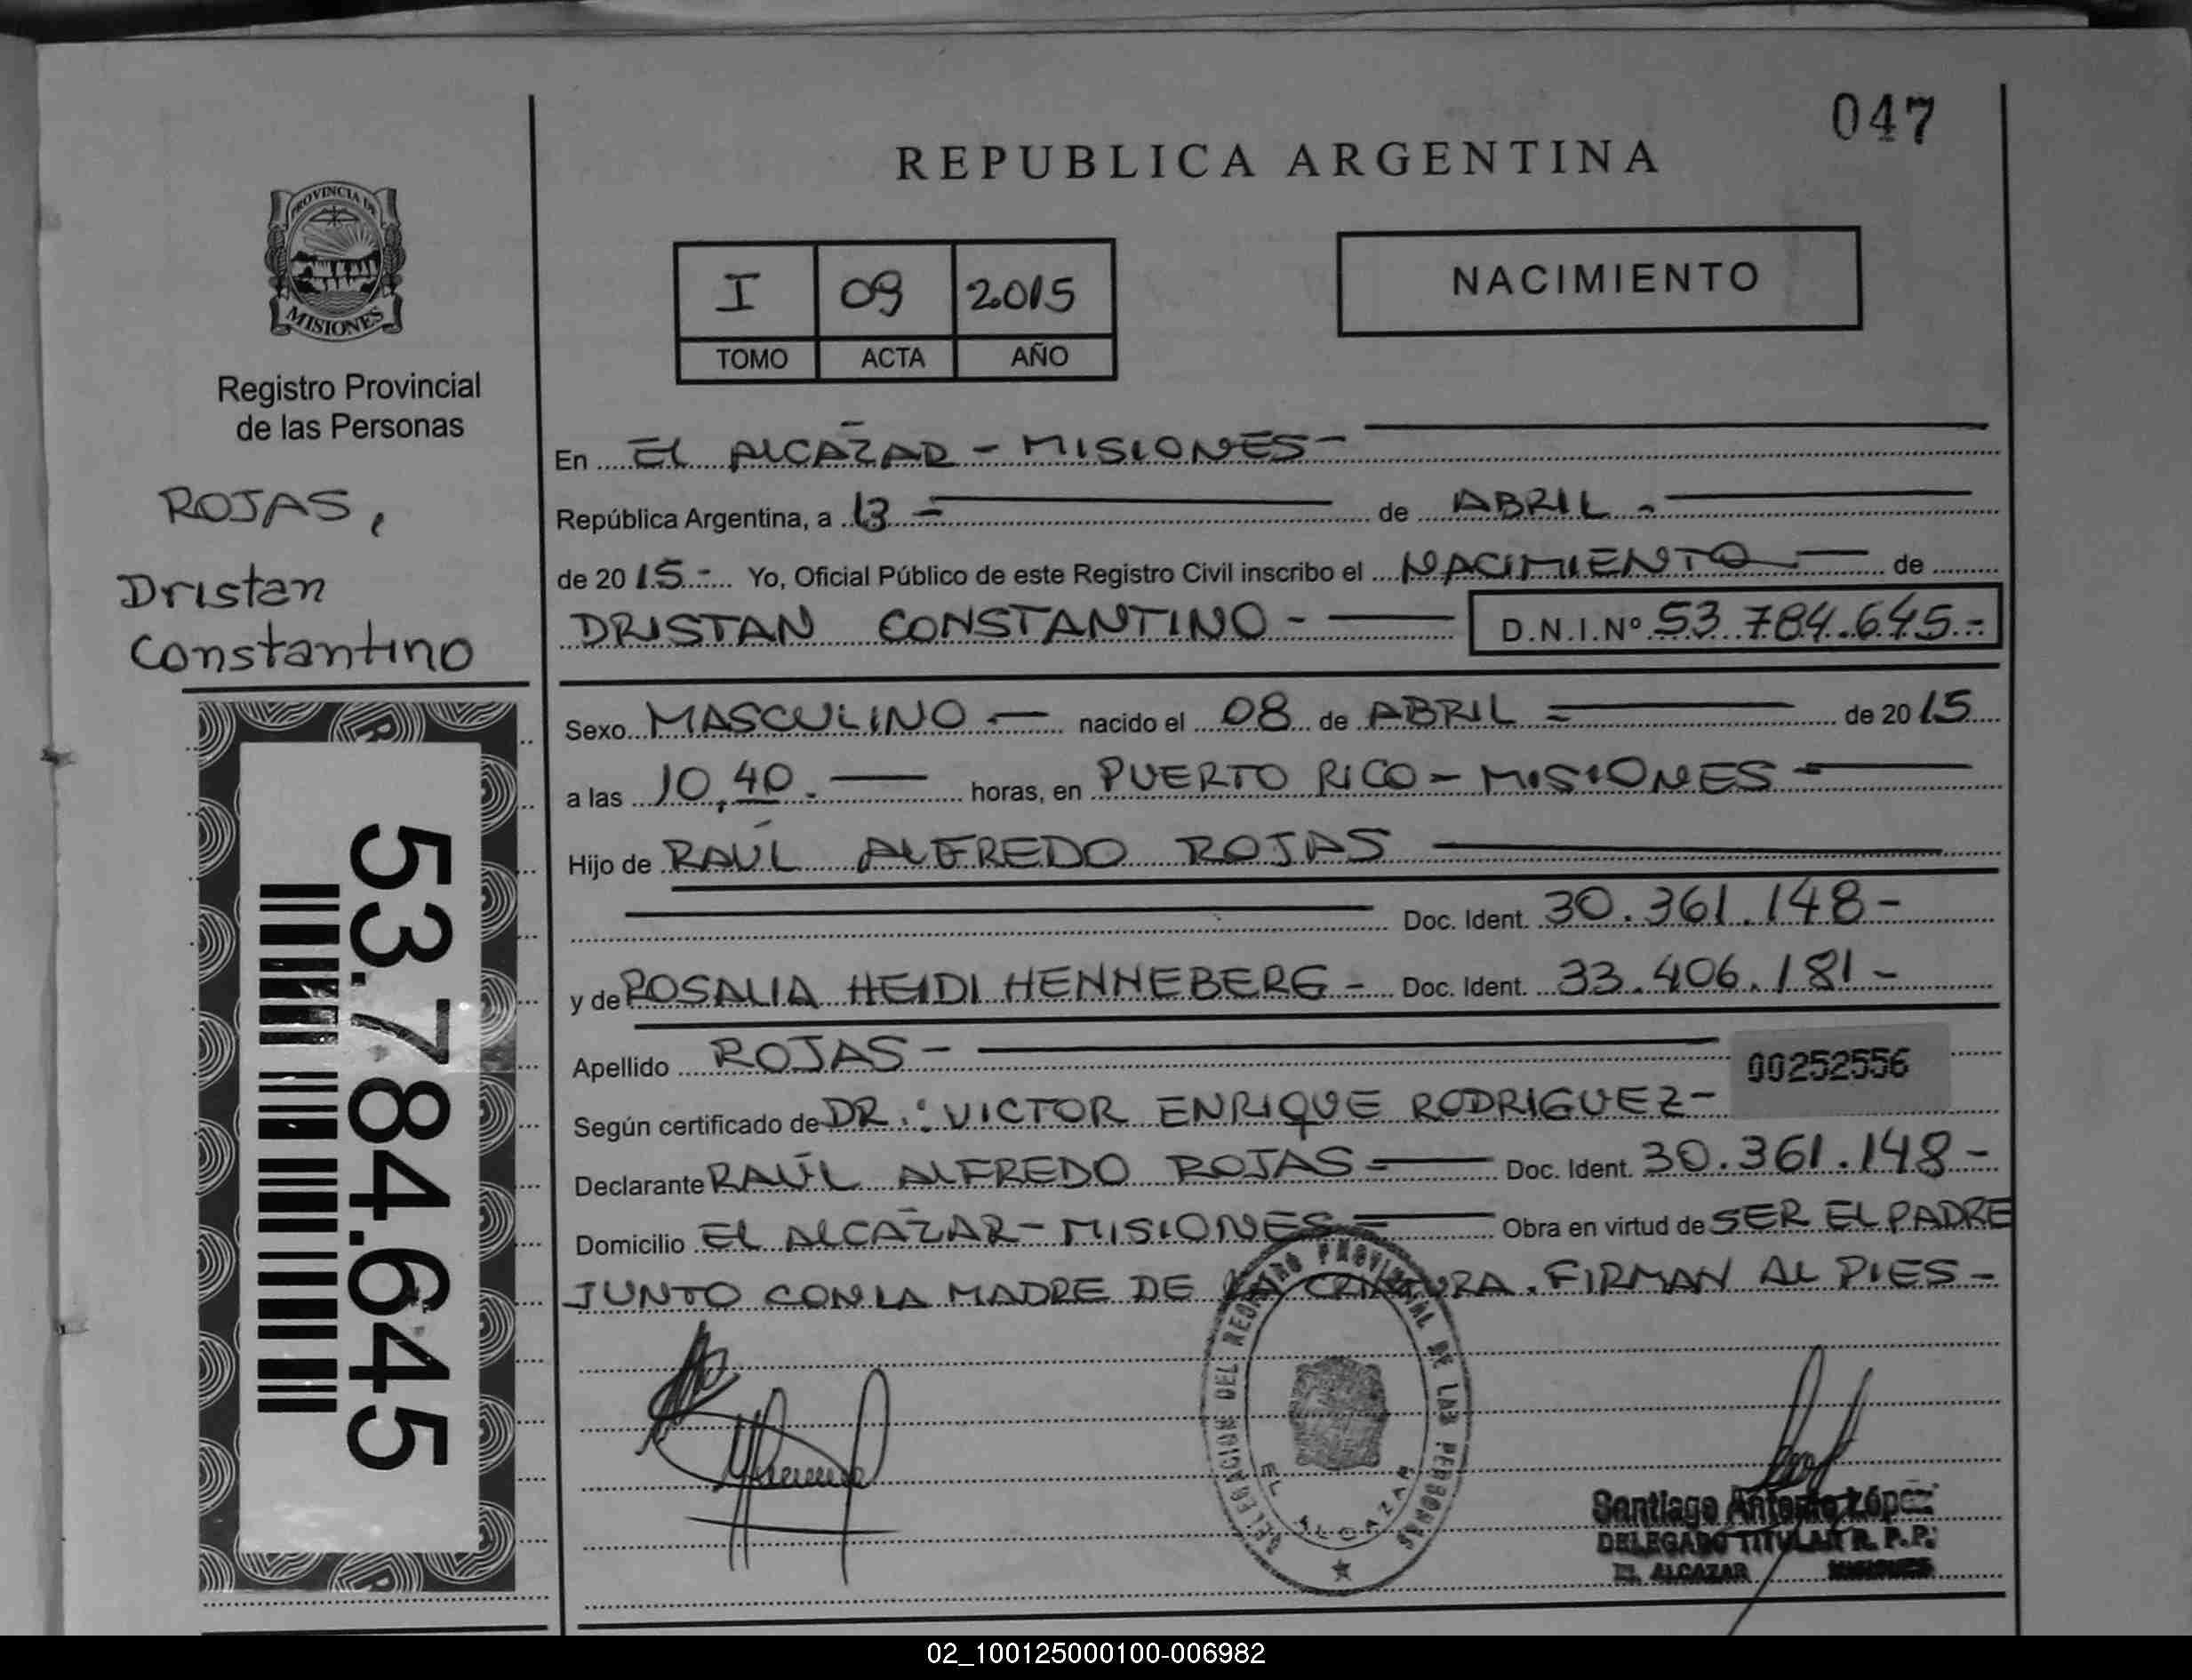 047
REPUBLICA ARGENTINA
PROVINCIA DE
MISIONES
Registro Provincial
de las Personas
I 09 2015
TOMO ACTA AÑO
NACIMIENTO
ROJAS,
Dristan
Constantino
53.784.645
En EL ALCAZAR - MISIONES -
República Argentina, a 13 - de ABRIL -
de 2015 - Yo, Oficial Público de este Registro Civil inscribo el NACIMIENTO de
DRISTAN CONSTANTINO - D.N.I.Nº 53.784.645.-
Sexo MASCULINO - nacido el 08 de ABRIL = de 2015
a las 10,40. horas, en PUERTO RICO - MISIONES -
Hijo de RAÚL ALFREDO ROJAS
Doc. Ident. 30.361.148-
y de ROSALIA HEIDI HENNEBERG - Doc. Ident. 33.406.181-
Apellido ROJAS - 00252556
Según certificado de DR.: VICTOR ENRIQUE RODRIGUEZ-
Declarante RAÚL ALFREDO ROJAS = Doc. Ident. 30.361.148-
Domicilio EL ALCAZAR - MISIONES = Obra en virtud de SER EL PADRE
JUNTO CON LA MADRE DE LA CRIATURA. FIRMAN AL PIES -
DELEGACION DEL REGISTRO PROVINCIAL DE LAS PERSONAS
EL ALCAZAR
Santiago Antonio López
DELEGADO TITULAR R. P. P.
EL ALCAZAR MISIONES
02_100125000100-006982